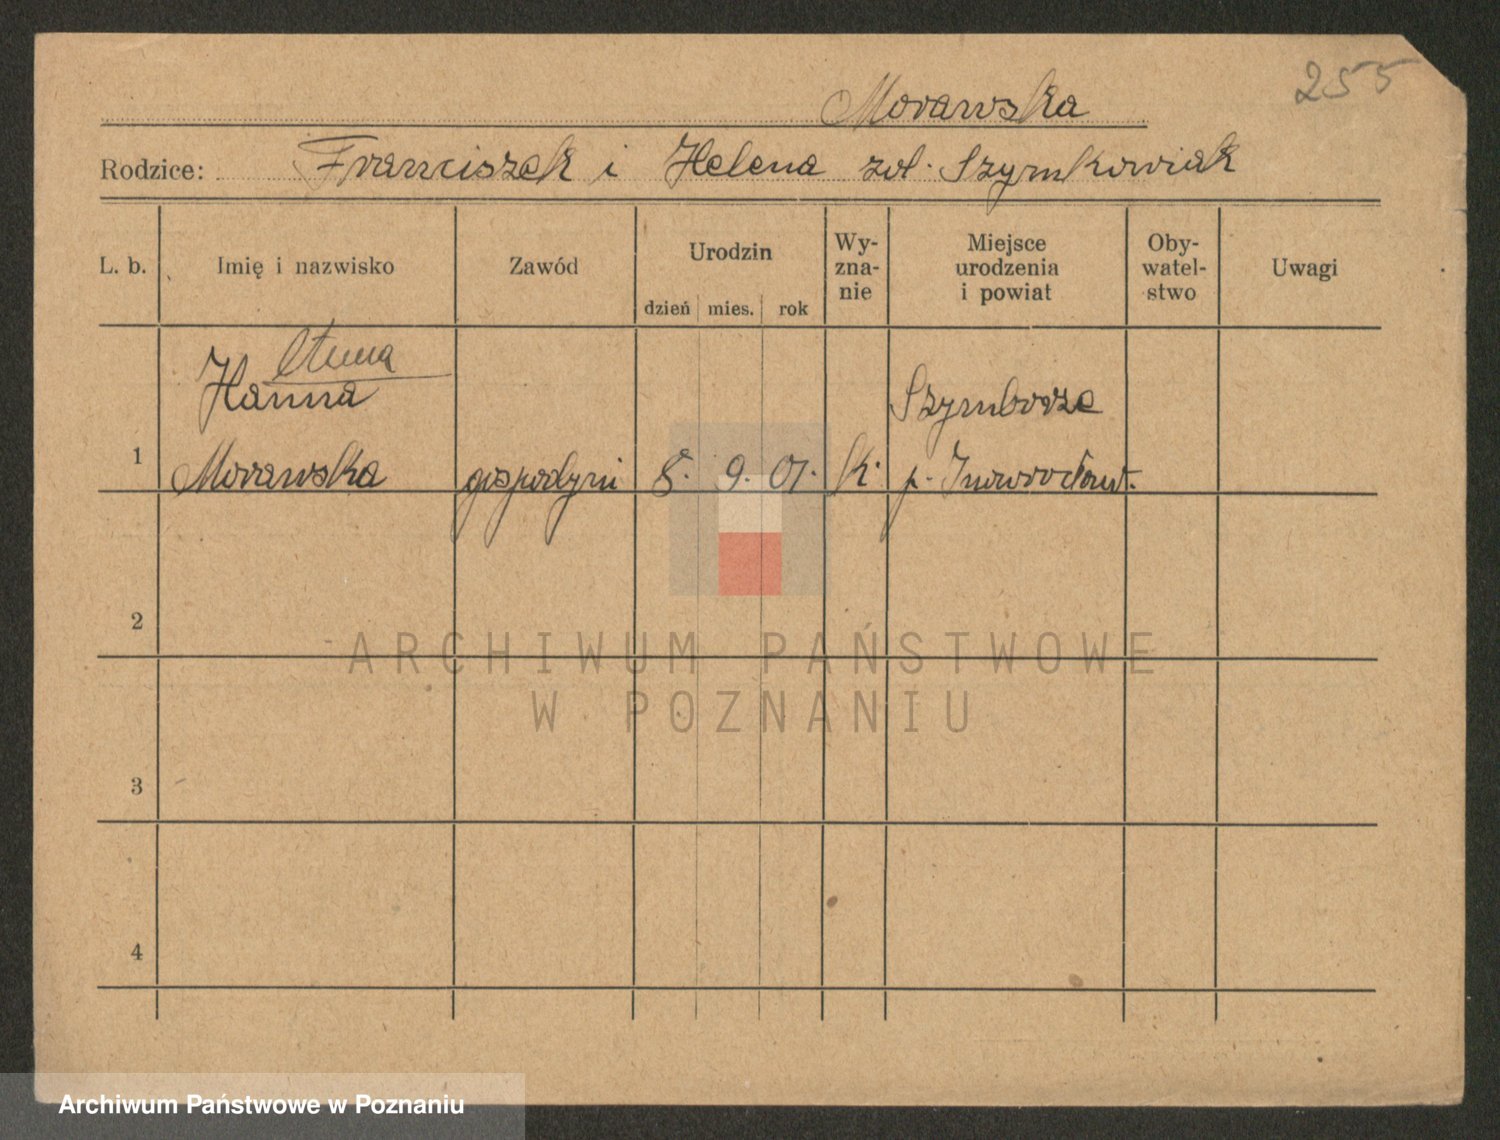 255
Morawska
Rodzice: Franciszek i Helena zd. Szymkowiak
L. b. Imię i nazwisko Zawód Urodzin dzień mies. rok Wy-zna-nie Miejsce urodzenia i powiat Oby-watel-stwo Uwagi
Anna
Hanna Szymborze
1 Morawska gospodyni 8. 9. 01. k. p. Inowrocław.
2
ARCHIWUM PAŃSTWOWE
W POZNANIU
3
4
Archiwum Państwowe w Poznaniu